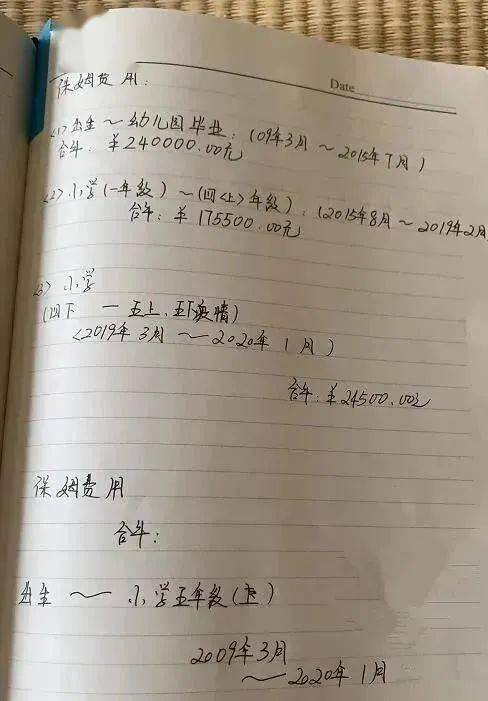 Date
保姆费用:
<1> 出生～幼儿园毕业:(09年3月～2015年7月)
合计:¥240000.00元
<2> 小学(一年级)～(四<上>年级):(2015年8月～2019年2月
合计:¥175500.00元
<3> 小学
(四下 一 五上、五下疫情)
<2019年3月～2020年1月)
合计:¥24500.00元
保姆费用
合计:
出生～小学五年级(上)
2009年3月
～2020年1月